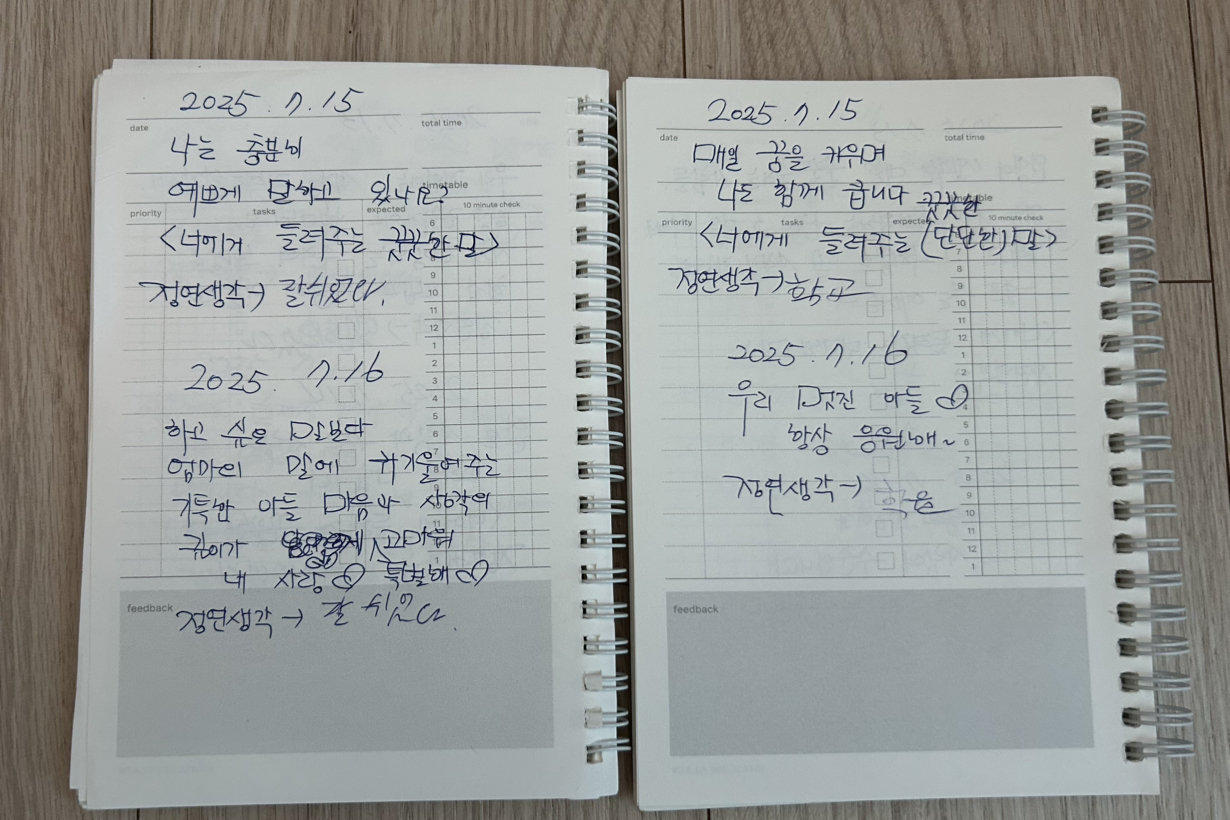 2025.7.15
date
total time
나는 충분히
예쁘게 말하고 있나요?
timetable
priority
tasks
expected
10 minute check
<너에게 들려주는 꿋꿋한 말>
정연생각→ 잘쉬었다.
2025. 7.16
하고 싶은 말보다
엄마의 말에 귀기울여주는
기특한 아들 마음과 생각의
깊이가 고마워
내 사랑♡ 특별해♡
feedback
정연생각→ 잘 쉬었다.
2025.7.15
date
total time
매일 꿈을 키우며
나도 함께 큽니다
timetable
꿋꿋한
priority
tasks
expected
10 minute check
<너에게 들려주는 (단단한) 말>
정연생각→
2025.7.16
우리 멋진 아들♡
항상 응원해~
정연생각→
feedback